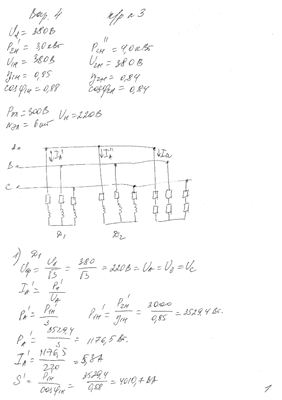 Вар. 4 к/р №3
Uл = 380В
P2н' = 3,0 кВт P2н'' = 4,0 кВт
Uн = 380В U2н = 380В
η1н = 0,85 η2н = 0,84
cosφ1н = 0,88 cosφ2н = 0,84
Pл = 300В Uн = 220В
nэл = 6 шт
A
IA' IA'' IA
B
C
Д1 Д2
1) Д1
Uф = Uл/√3 = 380/√3 = 220В = UA = UB = UC
IA' = PA'/UA
PA' = P1н'/3 P1н' = P2н'/η1н = 3000/0,85 = 3529,4 Вт.
PA' = 3529,4/3 = 1176,5 Вт.
IA' = 1176,5/220 = 5,3 А
S' = P1н/cosφ1н = 3529,4/0,88 = 4010,7 ВА
1